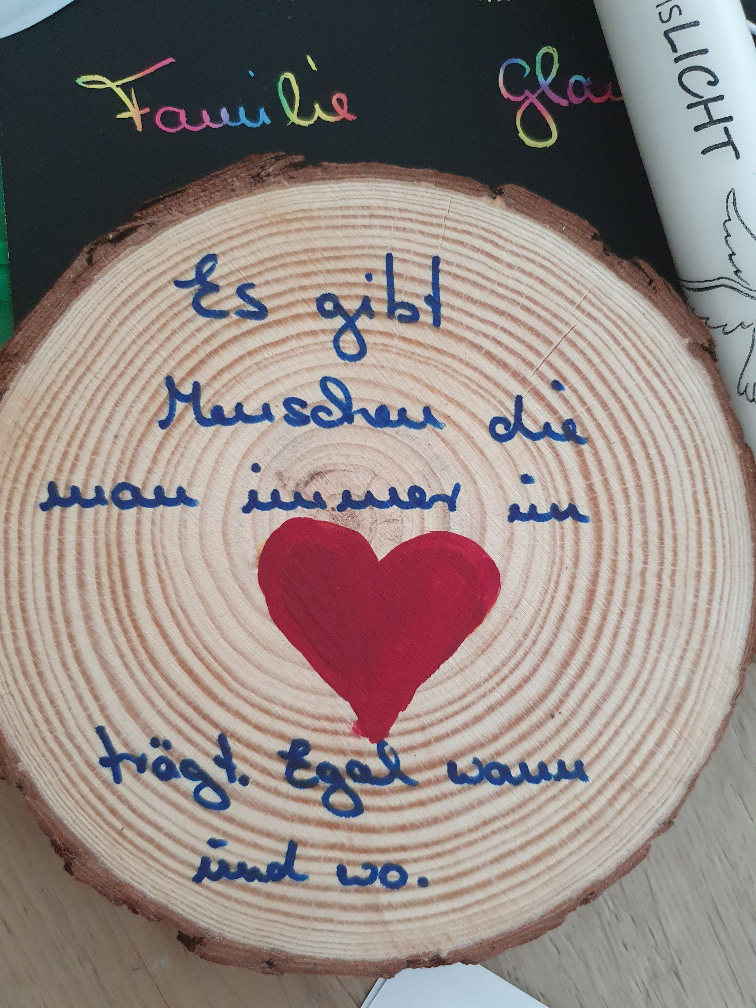 Familie
LICHT
Es gibt
Menschen die
man immer im
trägt. Egal wann
und wo.